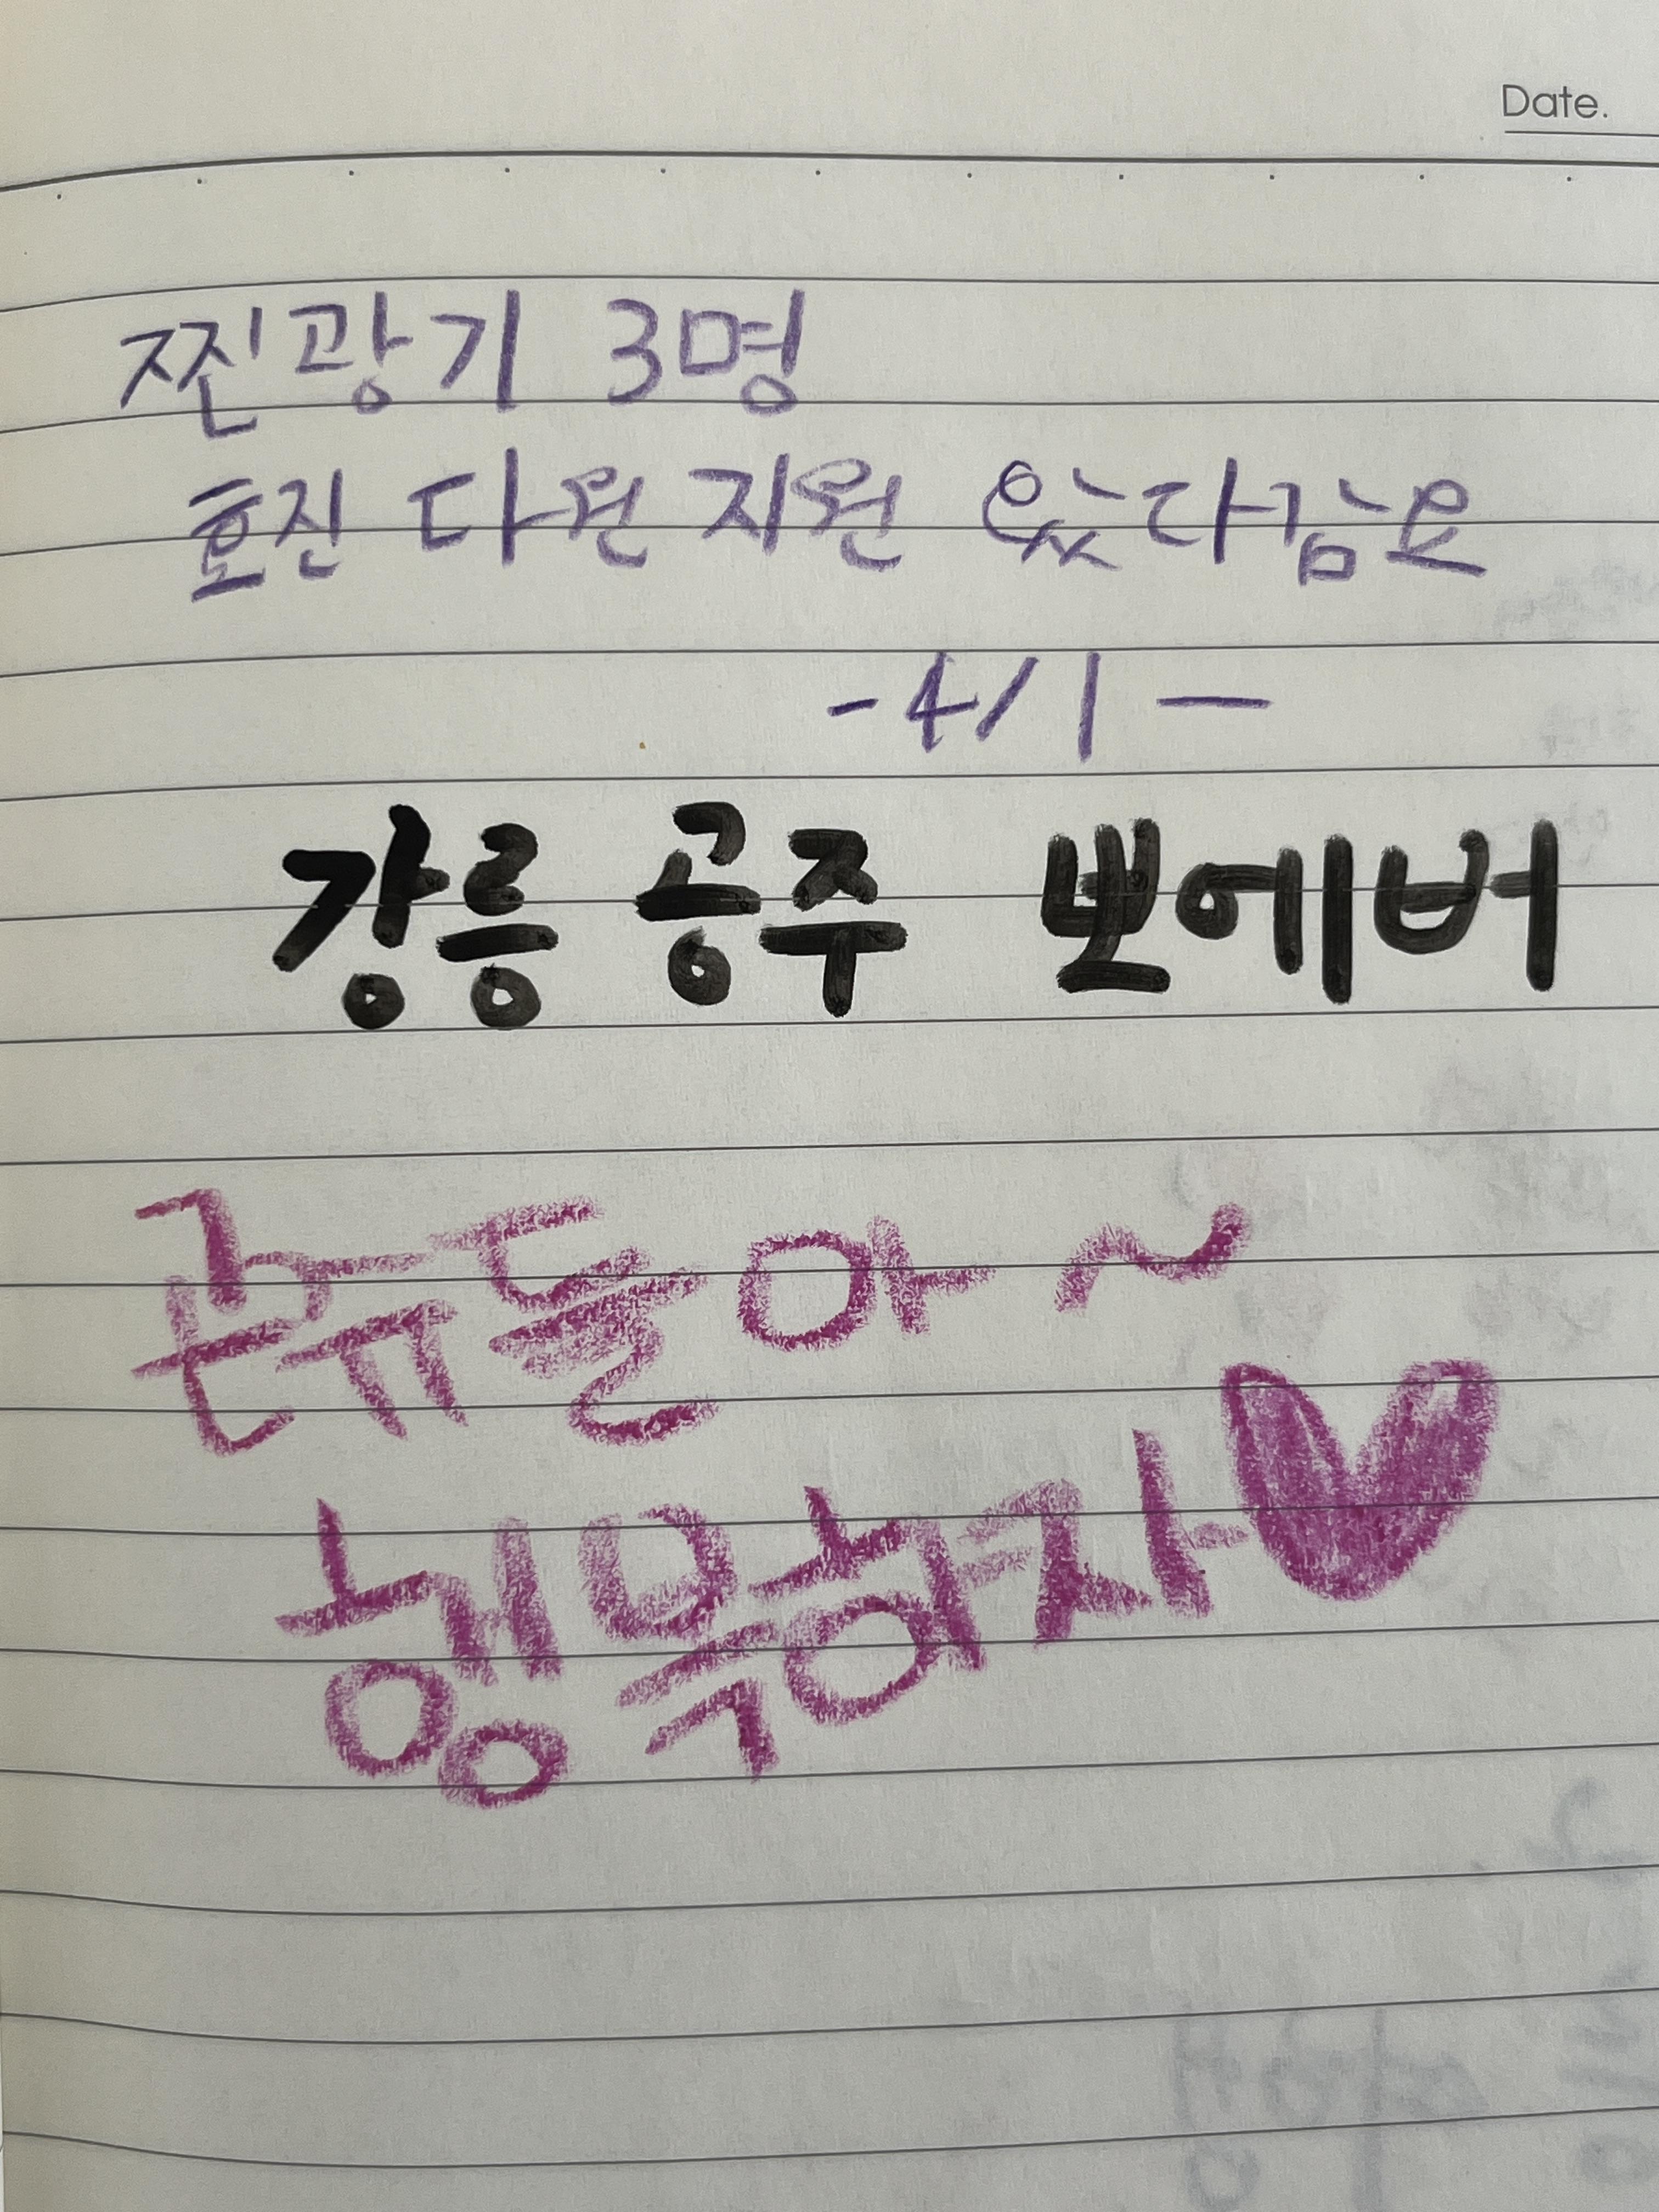 Date.
찐광기 3명
효진 다원 지원 왔다감요
-4/1-
강릉 공주 뽀에버
행묵하자